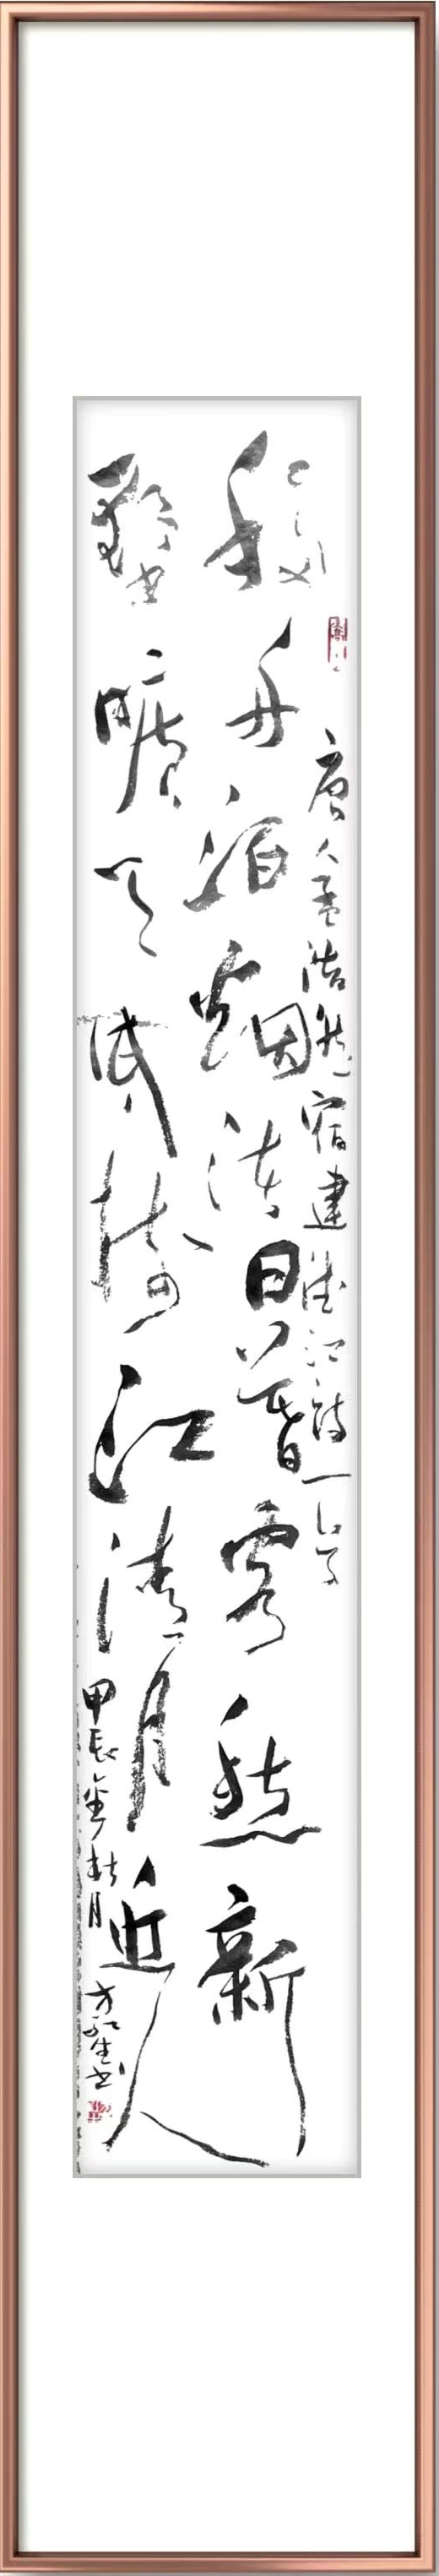 唐人孟浩然宿建德江詩一首
移舟泊烟渚日暮客愁新
野曠天低樹江清月近人
甲辰金秋月
方生书